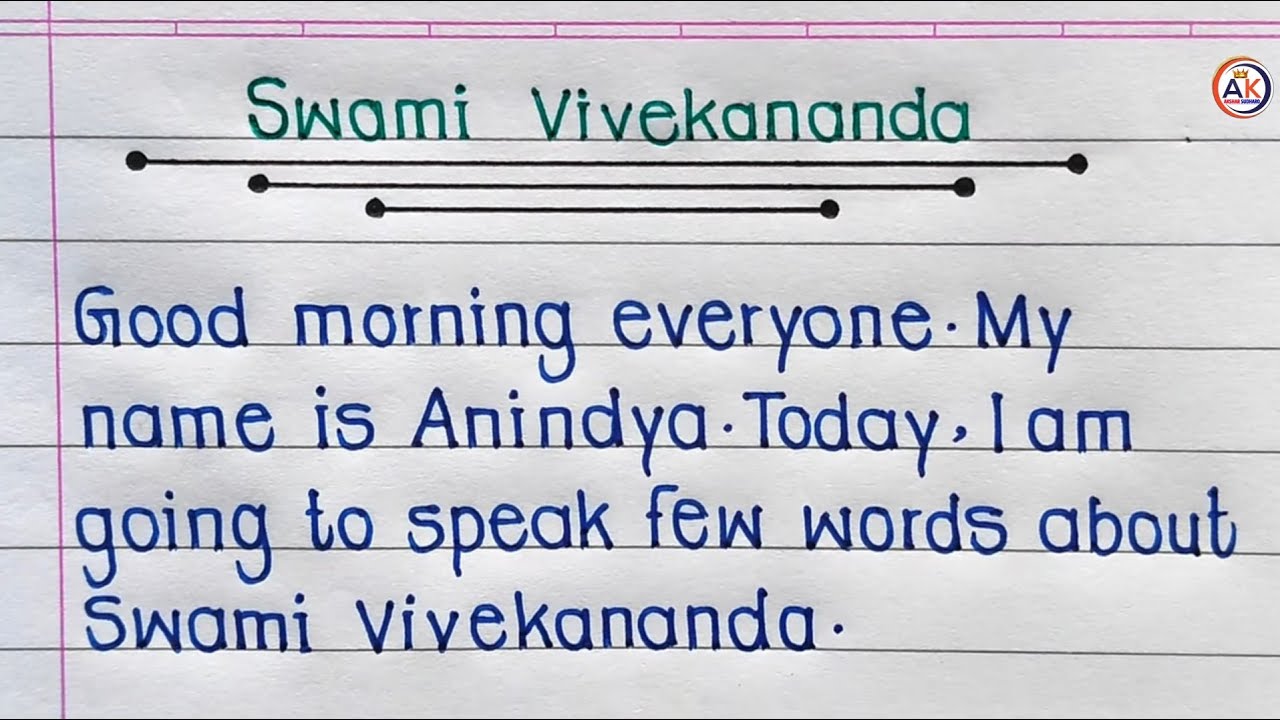 Swami Vivekananda
AK
AKSHAR SUDHARO
Good morning everyone. My
name is Anindya. Today, I am
going to speak few words about
Swami Vivekananda.